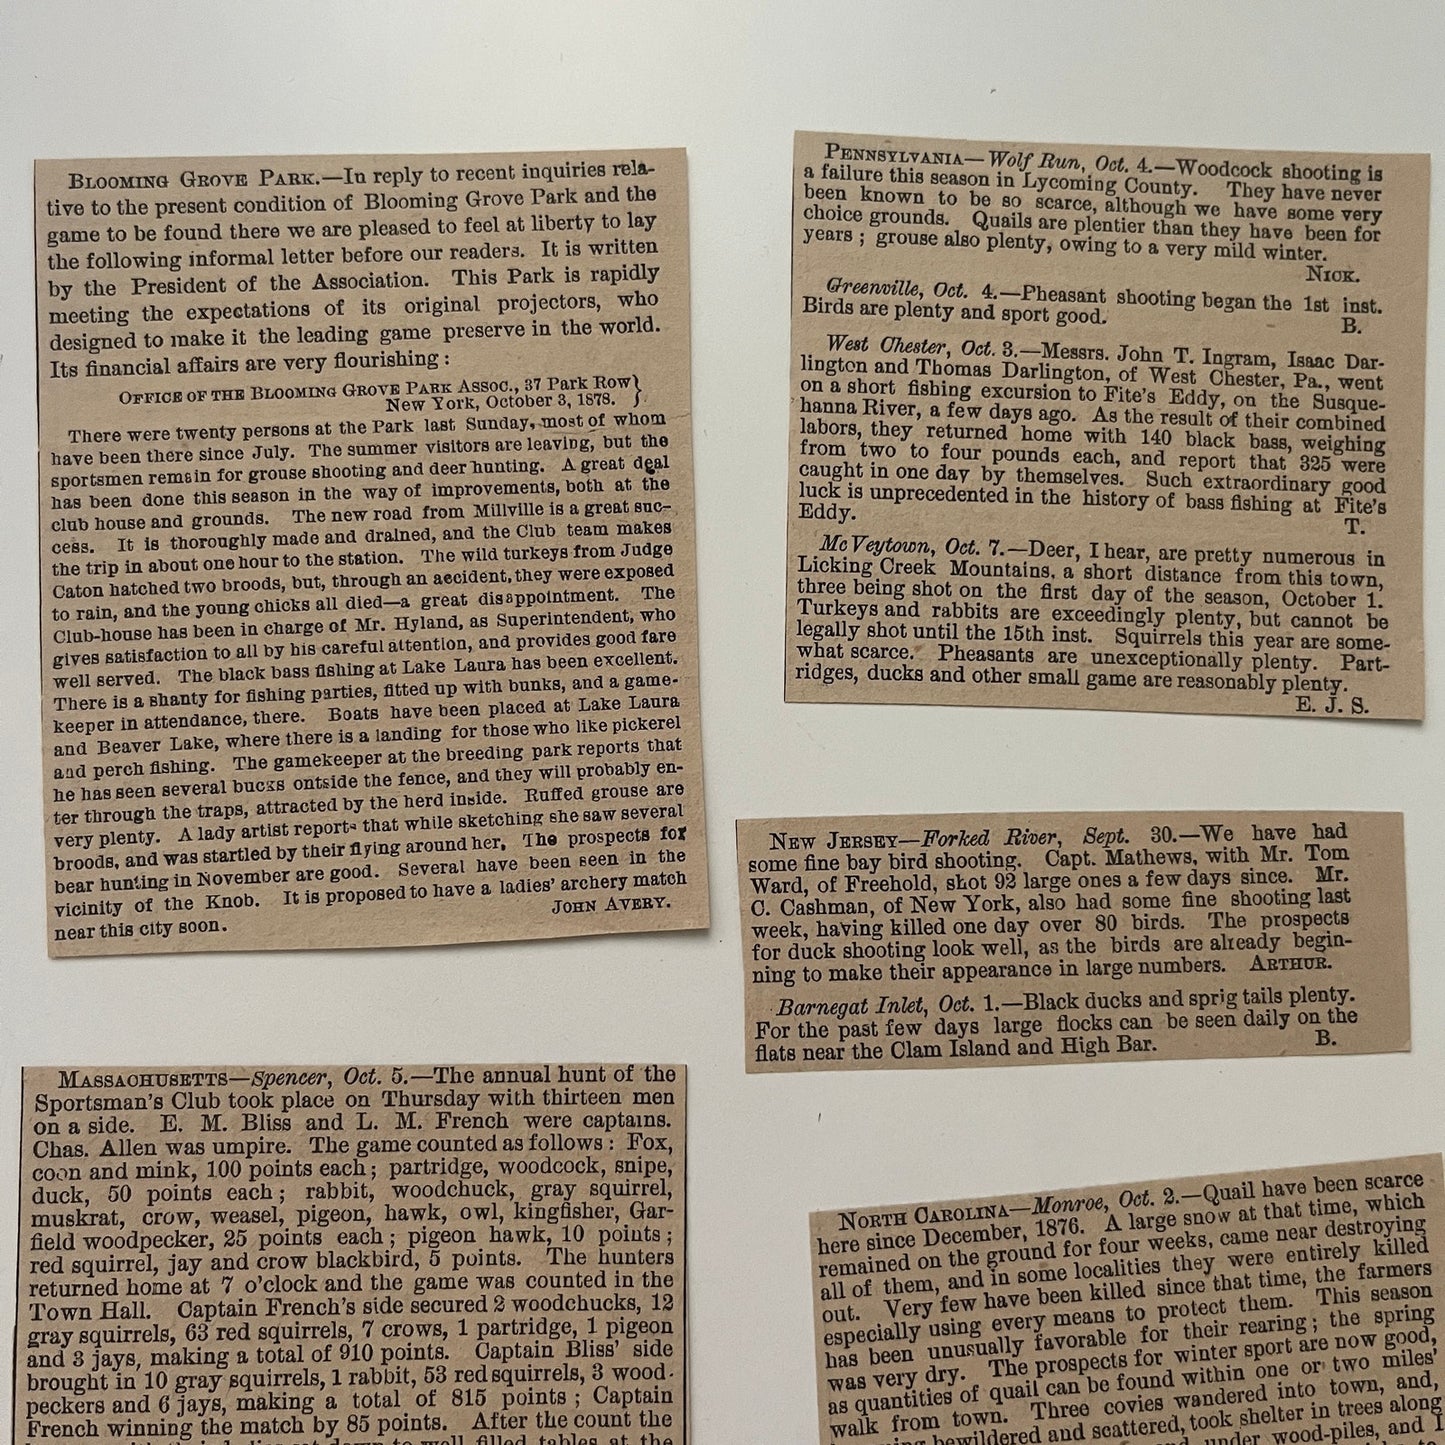 BLOOMING GROVE PARK.—In reply to recent inquiries rela-
tive to the present condition of Blooming Grove Park and the
game to be found there we are pleased to feel at liberty to lay
the following informal letter before our readers. It is written
by the President of the Association. This Park is rapidly
meeting the expectations of its original projectors, who
designed to make it the leading game preserve in the world.
Its financial affairs are very flourishing:
OFFICE OF THE BLOOMING GROVE PARK ASSOC., 37 Park Row }
New York, October 3, 1878. }
There were twenty persons at the Park last Sunday, most of whom
have been there since July. The summer visitors are leaving, but the
sportsmen remain for grouse shooting and deer hunting. A great deal
has been done this season in the way of improvements, both at the
club house and grounds. The new road from Millville is a great suc-
cess. It is thoroughly made and drained, and the Club team makes
the trip in about one hour to the station. The wild turkeys from Judge
Caton hatched two broods, but, through an accident, they were exposed
to rain, and the young chicks all died—a great disappointment. The
Club-house has been in charge of Mr. Hyland, as Superintendent, who
gives satisfaction to all by his careful attention, and provides good fare
well served. The black bass fishing at Lake Laura has been excellent.
There is a shanty for fishing parties, fitted up with bunks, and a game-
keeper in attendance, there. Boats have been placed at Lake Laura
and Beaver Lake, where there is a landing for those who like pickerel
and perch fishing. The gamekeeper at the breeding park reports that
he has seen several bucks ontside the fence, and they will probably en-
ter through the traps, attracted by the herd inside. Ruffed grouse are
very plenty. A lady artist reports that while sketching she saw several
broods, and was startled by their flying around her. The prospects for
bear hunting in November are good. Several have been seen in the
vicinity of the Knob. It is proposed to have a ladies' archery match
near this city soon.
JOHN AVERY.
MASSACHUSETTS—Spencer, Oct. 5.—The annual hunt of the
Sportsman's Club took place on Thursday with thirteen men
on a side. E. M. Bliss and L. M. French were captains.
Chas. Allen was umpire. The game counted as follows: Fox,
coon and mink, 100 points each; partridge, woodcock, snipe,
duck, 50 points each; rabbit, woodchuck, gray squirrel,
muskrat, crow, weasel, pigeon, hawk, owl, kingfisher, Gar-
field woodpecker, 25 points each; pigeon hawk, 10 points;
red squirrel, jay and crow blackbird, 5 points. The hunters
returned home at 7 o'clock and the game was counted in the
Town Hall. Captain French's side secured 2 woodchucks, 12
gray squirrels, 63 red squirrels, 7 crows, 1 partridge, 1 pigeon
and 3 jays, making a total of 910 points. Captain Bliss' side
brought in 10 gray squirrels, 1 rabbit, 53 red squirrels, 3 wood-
peckers and 6 jays, making a total of 815 points; Captain
French winning the match by 85 points. After the count the
tables at the
PENNSYLVANIA—Wolf Run, Oct. 4.—Woodcock shooting is
a failure this season in Lycoming County. They have never
been known to be so scarce, although we have some very
choice grounds. Quails are plentier than they have been for
years; grouse also plenty, owing to a very mild winter.
NICK.
Greenville, Oct. 4.—Pheasant shooting began the 1st inst.
Birds are plenty and sport good. B.
West Chester, Oct. 3.—Messrs. John T. Ingram, Isaac Dar-
lington and Thomas Darlington, of West Chester, Pa., went
on a short fishing excursion to Fite's Eddy, on the Susque-
hanna River, a few days ago. As the result of their combined
labors, they returned home with 140 black bass, weighing
from two to four pounds each, and report that 325 were
caught in one day by themselves. Such extraordinary good
luck is unprecedented in the history of bass fishing at Fite's
Eddy. T.
McVeytown, Oct. 7.—Deer, I hear, are pretty numerous in
Licking Creek Mountains, a short distance from this town,
three being shot on the first day of the season, October 1.
Turkeys and rabbits are exceedingly plenty, but cannot be
legally shot until the 15th inst. Squirrels this year are some-
what scarce. Pheasants are unexceptionally plenty. Part-
ridges, ducks and other small game are reasonably plenty.
E. J. S.
NEW JERSEY—Forked River, Sept. 30.—We have had
some fine bay bird shooting. Capt. Mathews, with Mr. Tom
Ward, of Freehold, shot 92 large ones a few days since. Mr.
C. Cashman, of New York, also had some fine shooting last
week, having killed one day over 80 birds. The prospects
for duck shooting look well, as the birds are already begin-
ning to make their appearance in large numbers. ARTHUR.
Barnegat Inlet, Oct. 1.—Black ducks and sprig tails plenty.
For the past few days large flocks can be seen daily on the
flats near the Clam Island and High Bar. B.
NORTH CAROLINA—Monroe, Oct. 2.—Quail have been scarce
here since December, 1876. A large snow at that time, which
remained on the ground for four weeks, came near destroying
all of them, and in some localities they were entirely killed
out. Very few have been killed since that time, the farmers
especially using every means to protect them. This season
has been unusually favorable for their rearing; the spring
was very dry. The prospects for winter sport are now good,
as quantities of quail can be found within one or two miles'
walk from town. Three covies wandered into town, and,
bewildered and scattered, took shelter in trees along
under wood-piles, and I